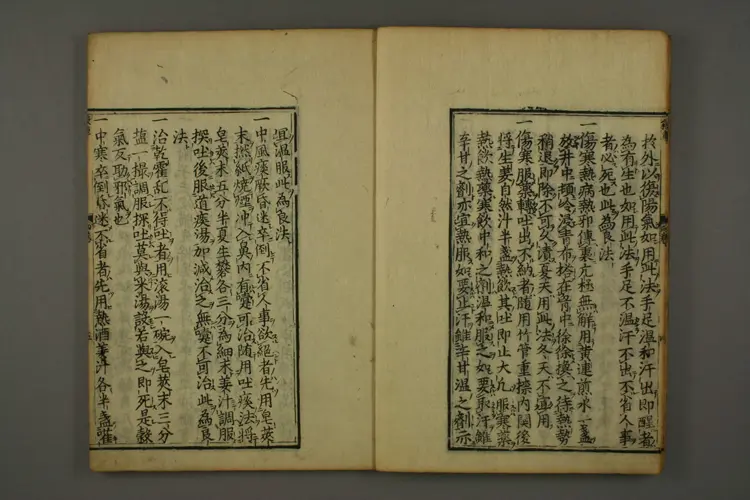 於外以復陽氣如用此法手足溫和汗出即醒者
為有生也如用此法手足不溫汗不出不省人事
者必死也此為良法
一傷寒熱病熱邪傳裏亢極無解用黃連煎水一盞
放井中頓冷浸青布搭在胷中徐徐換之待熱勢
稍退即除不可久漬夏天用此法冬天不宜用
一傷寒服藥轉吐出不納者隨用竹管重捺內關後
將生姜自然汁半盞熱飲其吐即止大凡服寒藥
熱飲熱藥寒飲中和之劑溫和服之如要取汗雖
辛甘之劑亦宜熱服如要止汗雖辛甘溫之劑亦
宜溫服此為良法
一中風痰厥昏迷卒倒不省人事欲絕者先用皂莢
末撚紙燒煙冲入鼻內有嚏可治隨用吐痰法將
皂莢末五分半夏生礬各三分為細末姜汁調服
探吐後服道痰湯加減治之無嚏不可治此為良
法
一治乾霍乱不得吐者用滾湯一碗入皂莢末三分
塩一撮調服探吐莫與米湯設若與之即死是穀
氣反助邪氣也
一中寒卒倒昏迷不省者先用熱酒姜汁各半盞灌